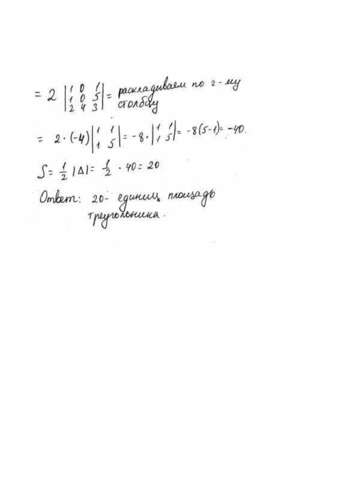 = 2 |1 0 1; 1 0 5; 2 4 3| = раскладываем по 2-му
столбцу
= 2·(-4) |1 1; 1 5| = -8·|1 1; 1 5| = -8(5-1) = -40.
S = 1/2 |Δ| = 1/2 · 40 = 20
Ответ: 20- единиц площадь
треугольника.